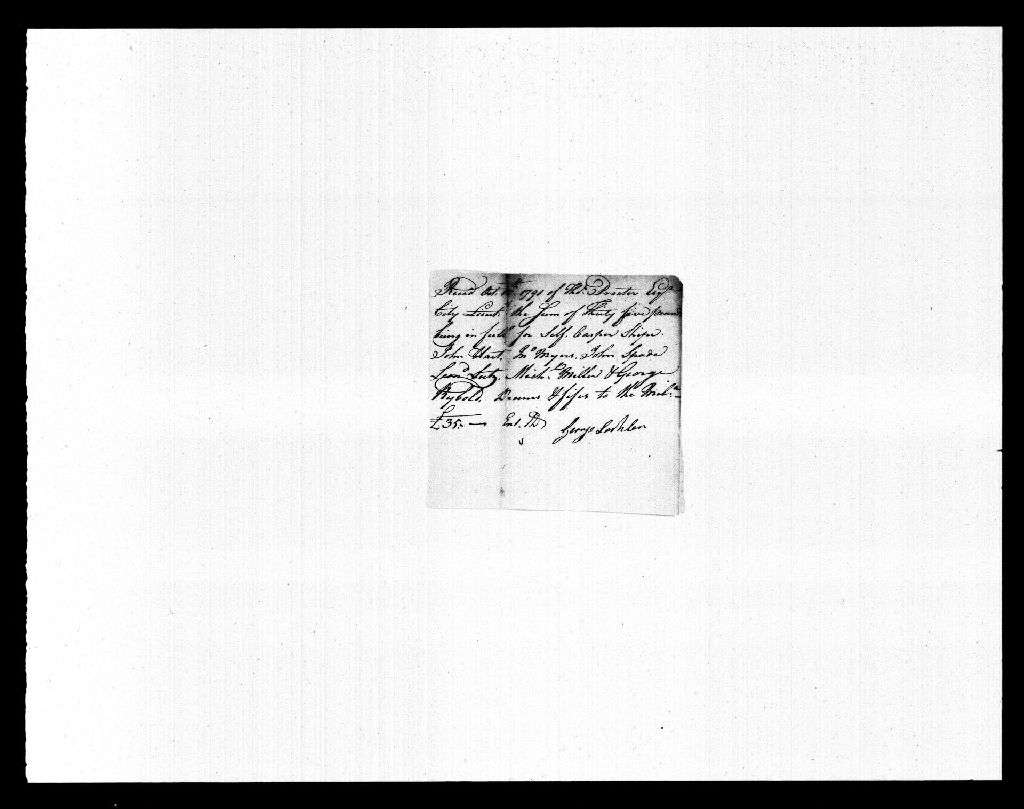 Recd Oct 1791 of Tho. Procter Esqr
City Lieut. the Sum of Thirty five pounds
being in full for Self. Casper Shipe
John Hart. Jno Myers. John Spade
Leond Lutz. Michl. Miller & George
Rybold. Drums & fifes to the Mila.
£35. — Ent. George Lechler